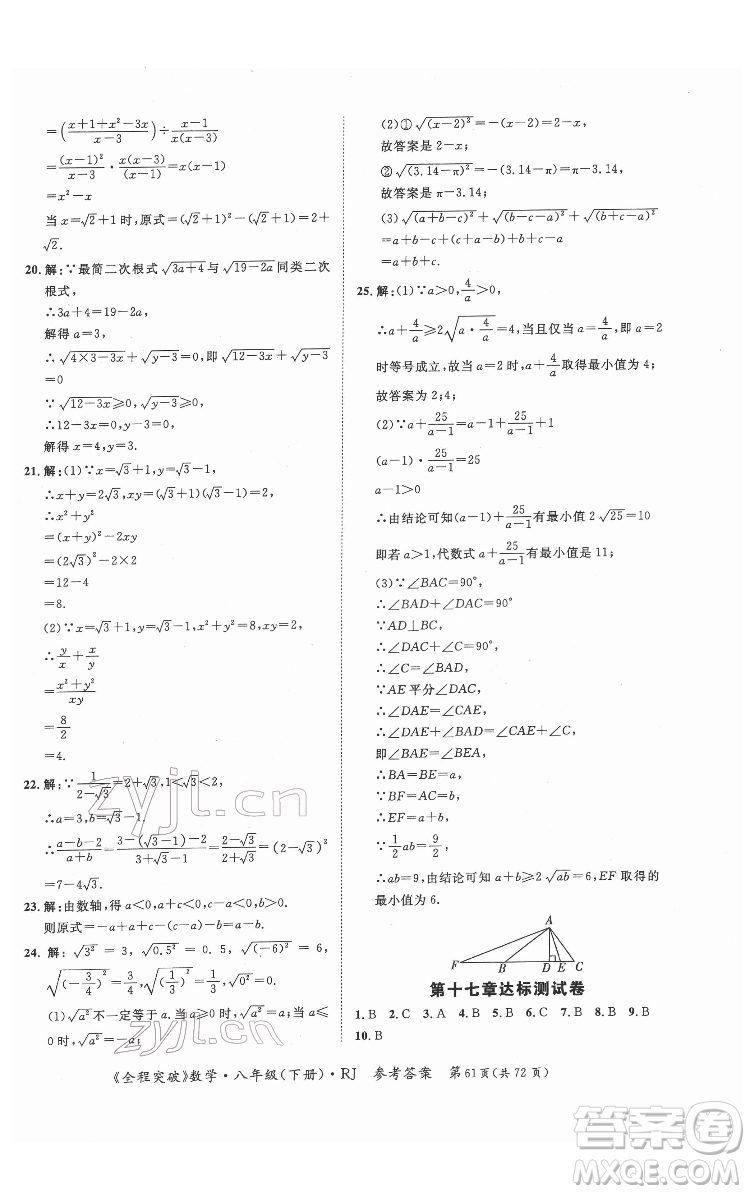 =((x+1+x²-3x)/(x-3))÷(x-1)/(x(x-3))
=(x-1)²/(x-3)·x(x-3)/(x-1)=x(x-1)
=x²-x
当 x=√2+1时,原式=(√2+1)²-(√2+1)=2+
√2.
20. 解:∵最简二次根式√(3a+4)与√(19-2a)同类二次
根式,
∴3a+4=19-2a,
解得 a=3,
∴√(4×3-3x)+√(y-3)=0,即√(12-3x)+√(y-3)
=0
∵√(12-3x)≥0,√(y-3)≥0,
∴12-3x=0,y-3=0,
解得 x=4,y=3.
21. 解:(1)∵x=√3+1,y=√3-1,
∴x+y=2√3,xy=(√3+1)(√3-1)=2,
∴x²+y²
=(x+y)²-2xy
=(2√3)²-2×2
=12-4
=8.
(2)∵x=√3+1,y=√3-1,x²+y²=8,xy=2,
∴y/x+x/y
=(x²+y²)/(xy)
=8/2
=4.
22. 解:∵1/(2-√3)=2+√3,1<√3<2,
∴a=3,b=√3-1.
∴(a-b-2)/(a+b)=(3-(√3-1)-2)/(3+√3-1)=(2-√3)/(2+√3)=(2-√3)²
=7-4√3.
23. 解:由数轴,得 a<0,a+b<0,-a+c>0,b+c<0.
则原式=-a+a+b-a+c-b-c=-a.
24. 解:√(3²)=3,√(0.5²)=0.5,√((-6)²)=6,
√((-3/4)²)=3/4,√((1/3)²)=1/3,√(0²)=0,
(1)√(a²)不一定等于 a,当 a≥0时,√(a²)=a;当 a
<0时,√(a²)=-a.
(2)①√((x-2)²)=2-x,
故答案是 2-x;
②√((3.14-π)²)=π-3.14,
故答案是 π-3.14;
(3)√((a+b-c)²)+√((b-c-a)²)+√((b+c-a)²)
=a+b-c+a+c-b+b+c-a
=a+b+c.
25. 解:(1)∵a>0,4/a>0,
∴a+4/a≥2√(a·4/a)=4,当且仅当 a=4/a,即 a=2
时等号成立,故当 a=2时,a+4/a取得最小值为 4;
故答案为 2;4;
(2)∵a+25/(a-1)=a-1+25/(a-1)+1,
(a-1)·25/(a-1)=25
a-1>0
∴由结论可知(a-1)+25/(a-1)有最小值 2√25=10
即若 a>1,代数式 a+25/(a-1)的最小值是 11;
(3)∵∠BAC=90°
∴∠BAD+∠DAC=90°
∵AD⊥BC,
∴∠C+∠DAC=90°,
∴∠C=∠BAD,
∵AE平分∠DAC,
∴∠DAE=∠CAE,
∴∠DAE+∠BAD=∠CAE+∠C,
即∠BAE=∠BEA,
∴BA=BE=a,
∵BF=AC=b,
∴EF=BE+BF=a+b,
∵1/2ab=9/2,
∴ab=9,由结论可知 a+b≥2√(ab)=6,EF取得
最小值为 6.
A
F B D E C
第十七章达标测试卷
1. B 2. C 3. A 4. B 5. C 6. B 7. B 8. B 9. B
10. B
《全程突破》数学·八年级(下册)·RJ 参考答案 第61页(共72页)
zyjl.cn
zyjl.cn
答案圈